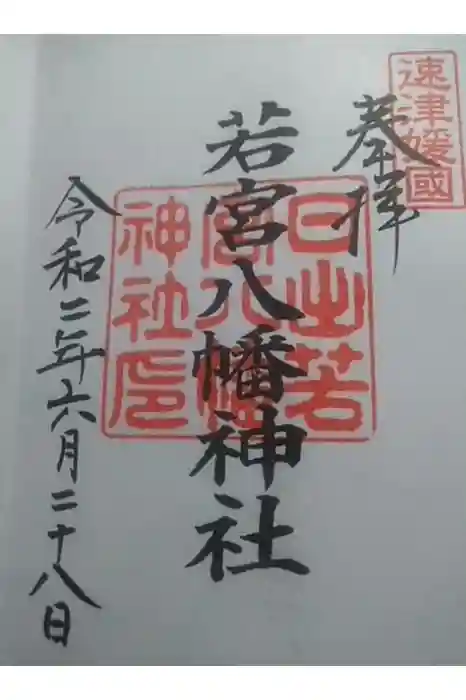 速津媛國
奉拝
若宮八幡神社
日出若
宮八幡
神社印
令和二年六月二十八日